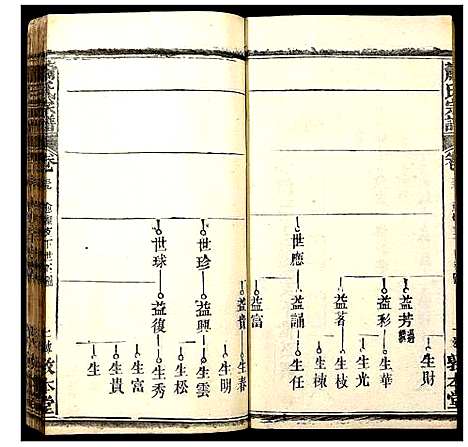 蕭氏宗譜
卷
敦本堂
世應
益芳
益彩
益著
益誦
益富
生財
生華
生光
生枝
生棟
生任
世珍
世球
益貴
益興
益復
生春
生明
生雲
生松
生秀
生富
生貴
生
蕭氏宗譜
卷
敦本堂